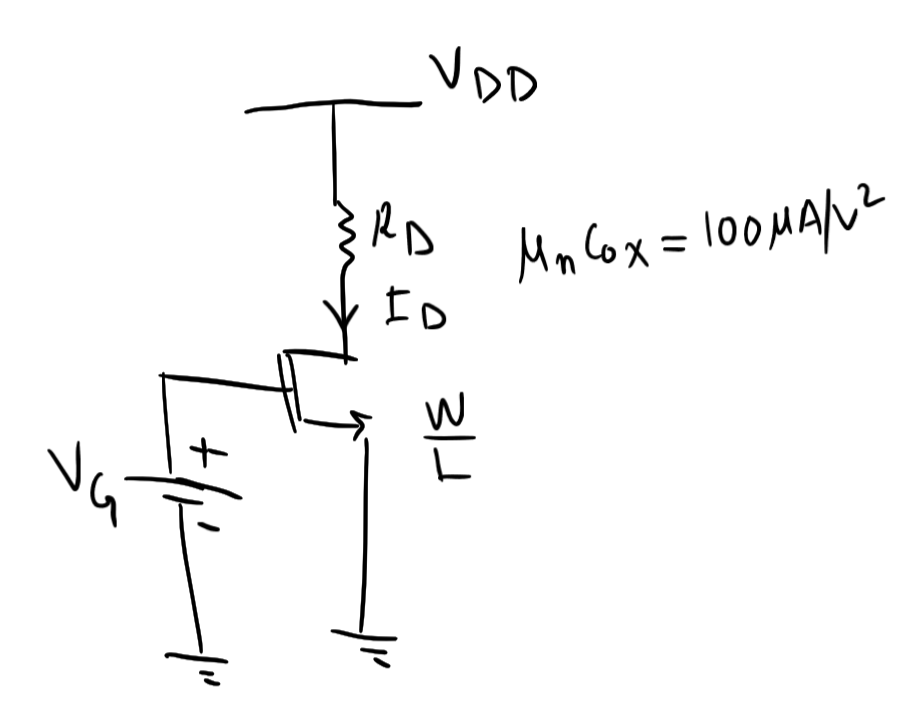 V_DD
R_D
μ_n C_ox = 100 μA/V²
I_D
W/L
+
V_G
-